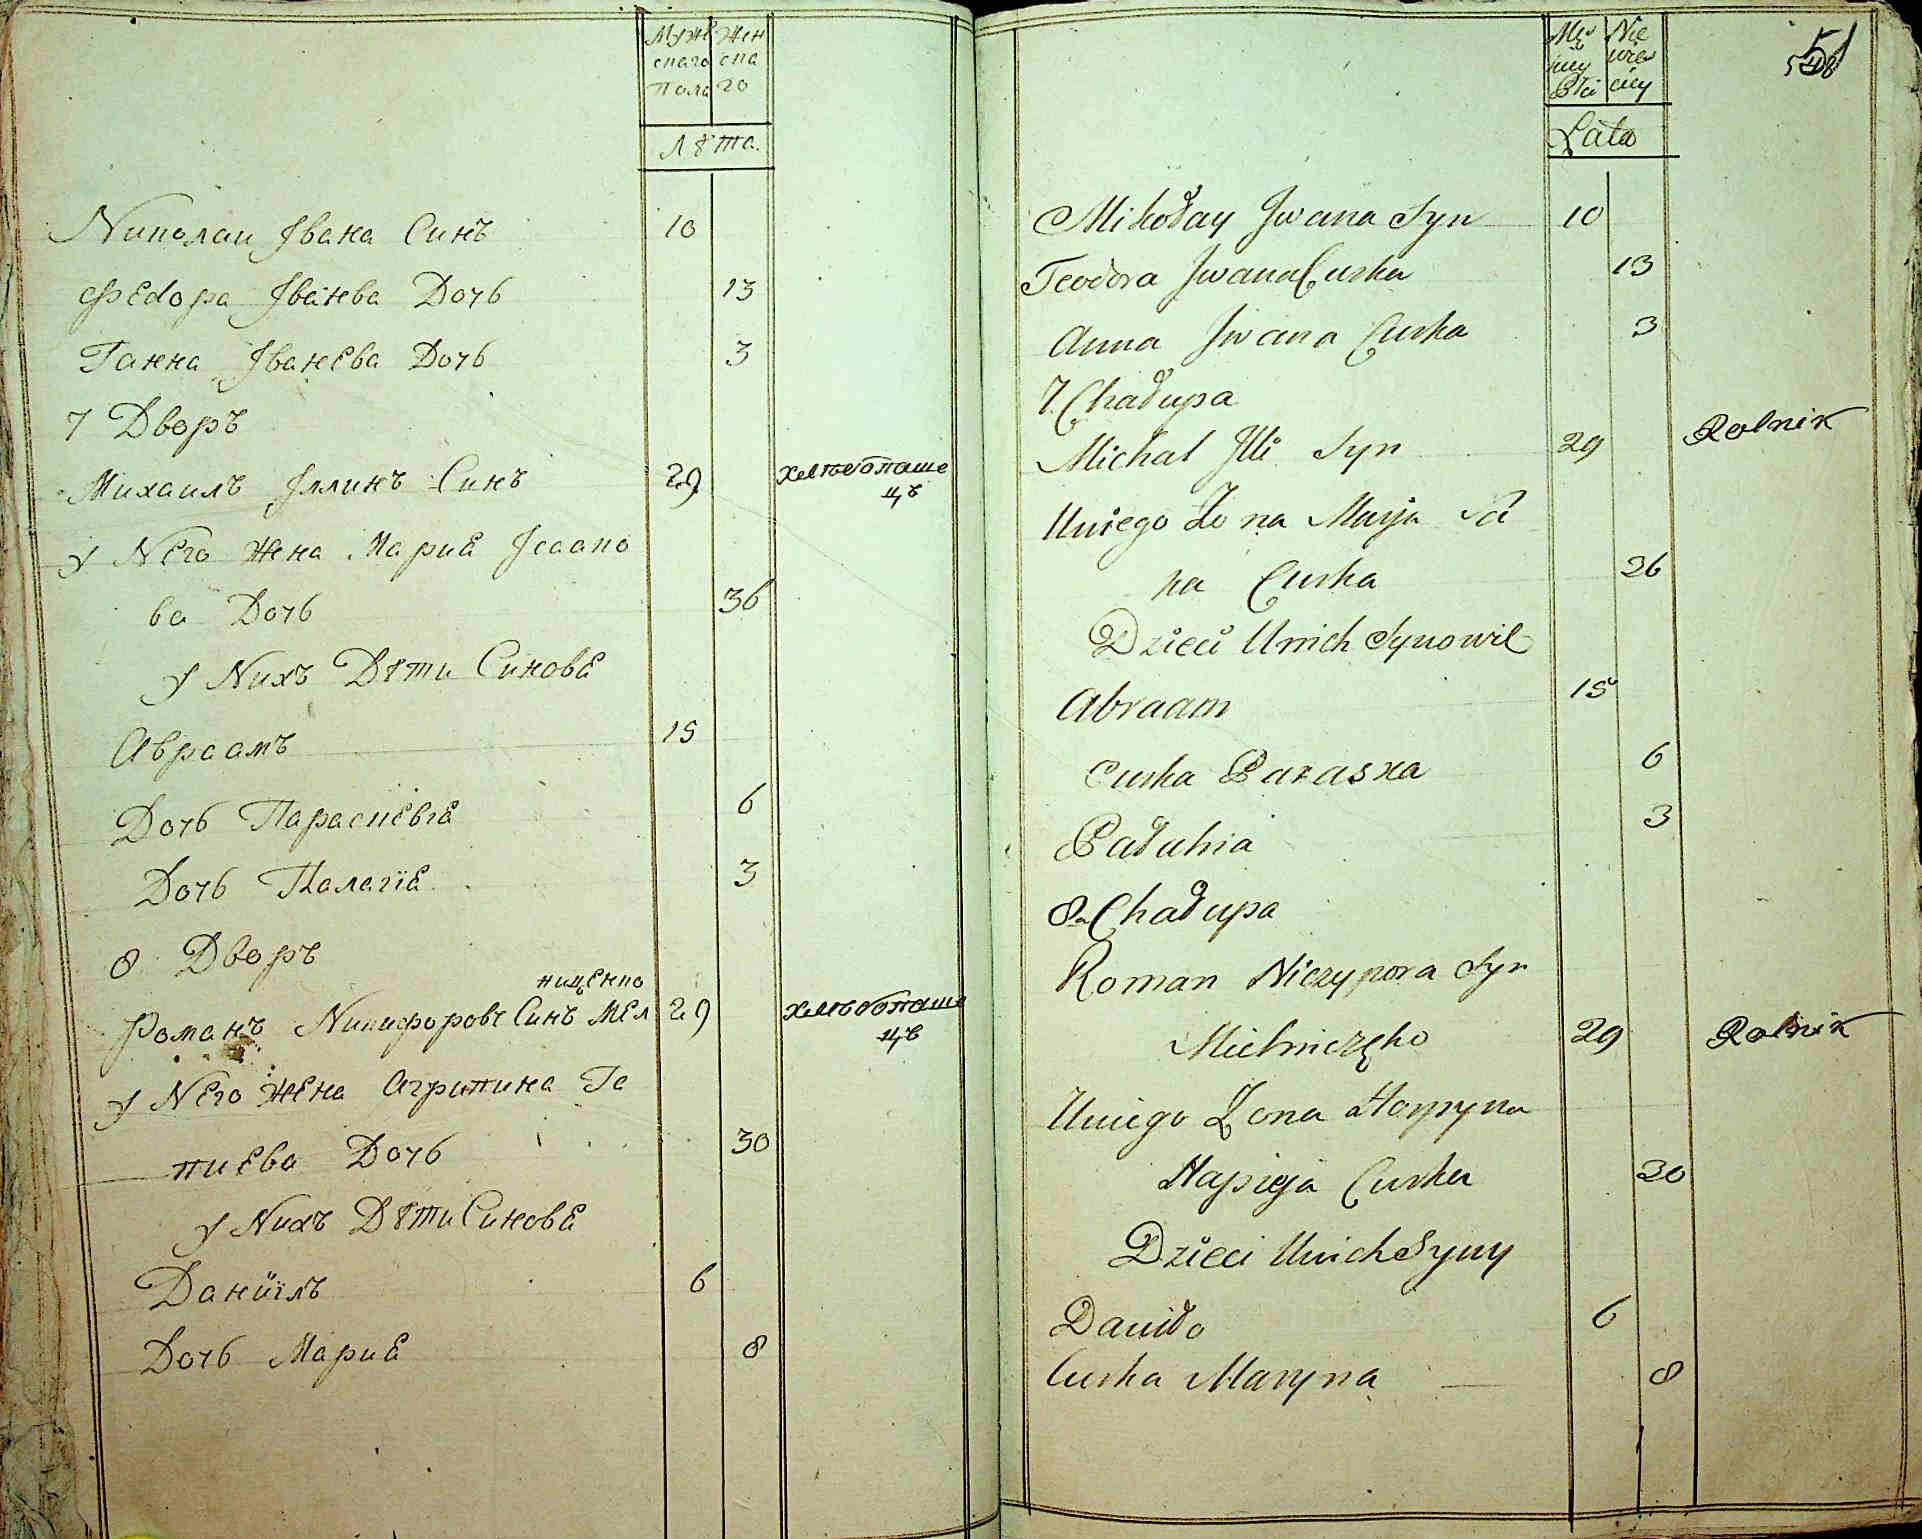 Мужес Жен
скаго ска
Пола го
Лѣта.
Николаи Івана Синъ 10
Федора Іванева Дочь 13
Ганна Іванева Дочь 3
7 Дворъ
Михаилъ Іллинъ Синъ 29 хлѣбопаше
цъ
у Него Жена Мариѣ Ісаако
ва Дочь 36
у Нихъ Дѣти Синовѣ
Авраамъ 15
Дочь Параскевіѣ 6
Дочь Палагіѣ 3
8 Дворъ
ниценко
Романъ Никифоровъ Синъ Мел 29 хлѣбопаше
цъ
у Него Жена Агрипина Га
пиева Дочь 30
у Нихъ Дѣти Синовѣ
Даніилъ 6
Дочь Мариѣ 8
51
Lata
Mikołay Jwana Syn 10
Teodora Jwana Curka 13
Anna Jwana Curka 3
7 Chałupa
Michał Jlli Syn 29 Rolnik
Uniego Żona Marja Sa
ka Curka 36
Dzieci Unich Synowie
Abraam 15
Curka Paraska 6
Pałahia 3
8a Chałupa
Roman Niczypora Syn
Mielniczęko 29 Rolnik
Uniego Żona Horpyna
Hapieja Curka 30
Dzieci Unich Syny
Daniło 6
Curka Maryna 8